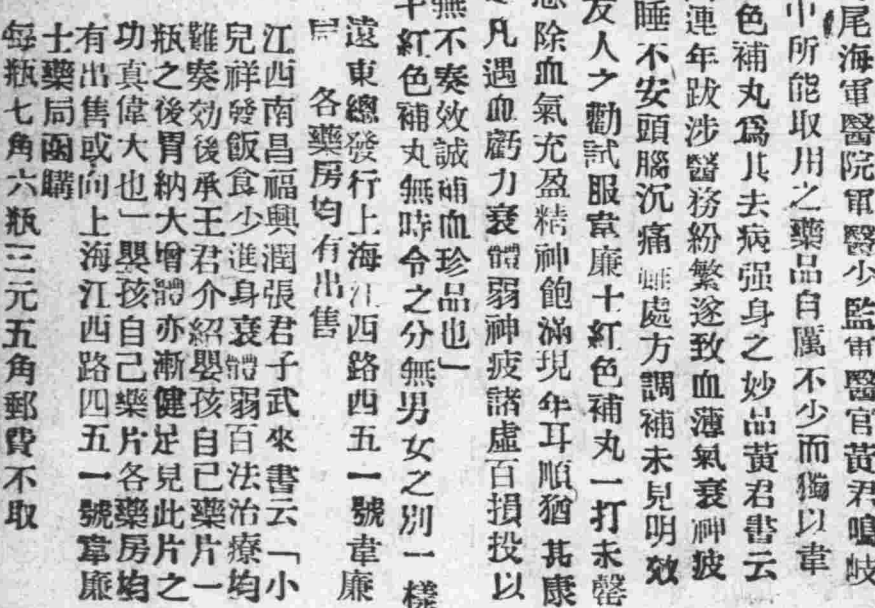 尾海軍醫院軍醫少監軍醫官黃君鳴岐
中所能取用之藥品自屬不少而獨以韋
色補丸爲其去病强身之妙品黃君書云
連年跋涉醫務紛繁遂致血薄氣衰神疲
睡不安頭腦沉痛雖處方調補未見明效
友人之勸試服韋廉士紅色補丸一打未罄
除血氣充盈精神飽滿現年耳順猶甚康
凡遇血虧力衰體弱神疲諸虛百損投以
無不奏效誠補血珍品也」
紅色補丸無時令之分無男女之別一樣
遠東總發行上海江西路四五一號韋廉
局 各藥房均有出售
江西南昌福興潤張君子武來書云「小
兒祥發飯食少進身衰體弱百法治療均
難奏効後承王君介紹嬰孩自己藥片一
瓶之後胃納大增體亦漸健足見此片之
功真偉大也」嬰孩自己藥片各藥房均
有出售或向上海江西路四五一號韋廉
士藥局函購
每瓶七角六瓶三元五角郵費不取